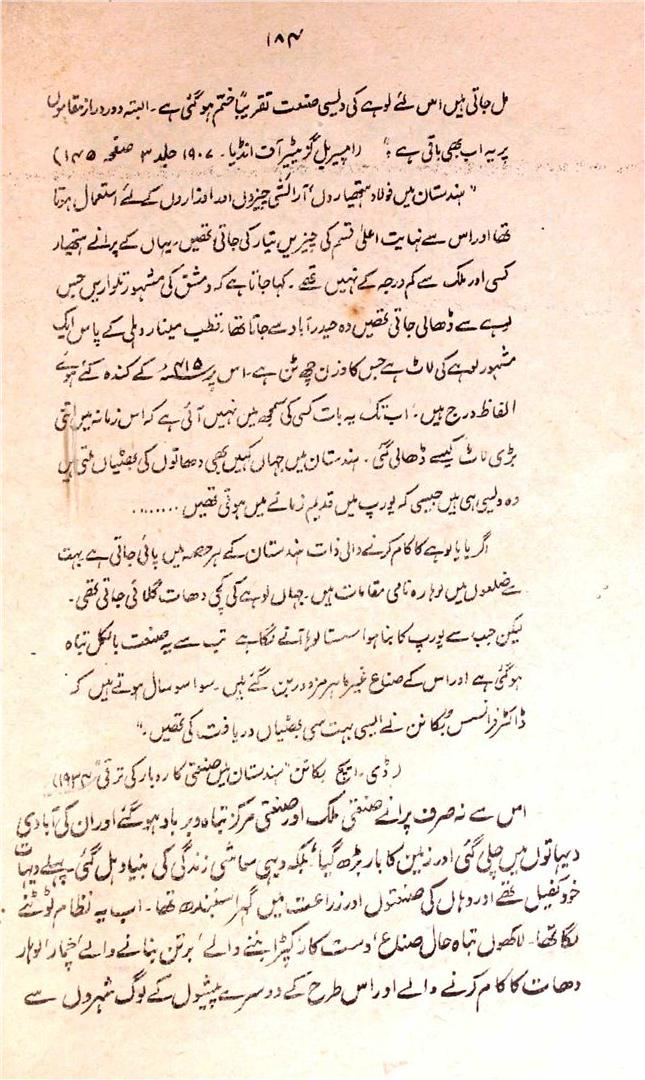 ۱۸۴
مل جاتی ہیں اس لئے لوہے کی دلیسی صنعت تقریباً ختم ہو گئی ہے۔ البتہ دور دراز مقاموں
پر یہ اب بھی باقی ہے؛" (امپیریل گزیٹیر آف انڈیا۔ ۱۹۰۷ جلد ۳ صفحہ ۱۴۵)
"ہندستان میں فولاد ہتھیاروں، آرائشی چیزوں اور اوزاروں کے لئے استعمال ہوتا
تھا اور اس سے نہایت اعلیٰ قسم کی چیزیں تیار کی جاتی تھیں۔ یہاں کے پرانے ہتھیار
کسی اور ملک سے کم درجہ کے نہیں تھے۔ کہا جاتا ہے کہ دمشق کی مشہور تلواریں جس
لوہے سے ڈھالی جاتی تھیں وہ حیدرآباد سے جاتا تھا۔ قطب مینار دہلی کے پاس ایک
مشہور لوہے کی لاٹ ہے جس کا وزن چھ ٹن ہے۔ اس پر ۴۱۵ء کے کندہ کئے ہوئے
الفاظ درج ہیں۔ اب تک یہ بات کسی کی سمجھ میں نہیں آئی ہے کہ اس زمانہ میں اتنی
بڑی لاٹ کیسے ڈھالی گئی۔ ہندستان میں جہاں کہیں بھی دھاتوں کی بھٹیاں ملتی ہیں
وہ ولیسی ہی ہیں جیسی کہ یورپ میں قدیم زمانے میں ہوتی تھیں ........
اگریا یا لوہے کا کام کرنے والی ذات ہندستان کے ہر حصہ میں پائی جاتی ہے بہت
سے ضلعوں میں لوہارہ نامی مقامات ہیں۔ جہاں لوہے کی کچی دھات گلائی جاتی تھی۔
لیکن جب سے یورپ کا بنا ہوا سستا لوہا آنے لگا ہے تب سے یہ صنعت بالکل تباہ
ہو گئی ہے اور اس کے صناع غیر ماہر مزدور بن گئے ہیں۔ سوا سو سال ہوتے ہیں کہ
ڈاکٹر فرانسس بکانن نے ایسی بہت سی بھٹیاں دریافت کی تھیں۔"
(ڈی۔ ایچ بکانن "ہندستان میں صنعتی کاروبار کی ترقی" ۱۹۳۴)
اس سے نہ صرف پرانے صنعتی ملک اور صنعتی مرکز تباہ و برباد ہو گئے اور ان کی آبادی
دیہاتوں میں چلی گئی اور زمین کا بار بڑھ گیا، بلکہ دیہی معاشی زندگی کی بنیاد ہل گئی۔ پہلے دیہات
خود کفیل تھے اور وہاں کی صنعتوں اور زراعت میں گہرا سنبندھ تھا۔ اب یہ نظام ٹوٹنے
لگا تھا۔ لاکھوں تباہ حال صناع، دست کار، کپڑا بننے والے، برتن بنانے والے، چمار، لوہار
دھات کا کام کرنے والے اور اس طرح کے دوسرے پیشوں کے لوگ شہروں سے